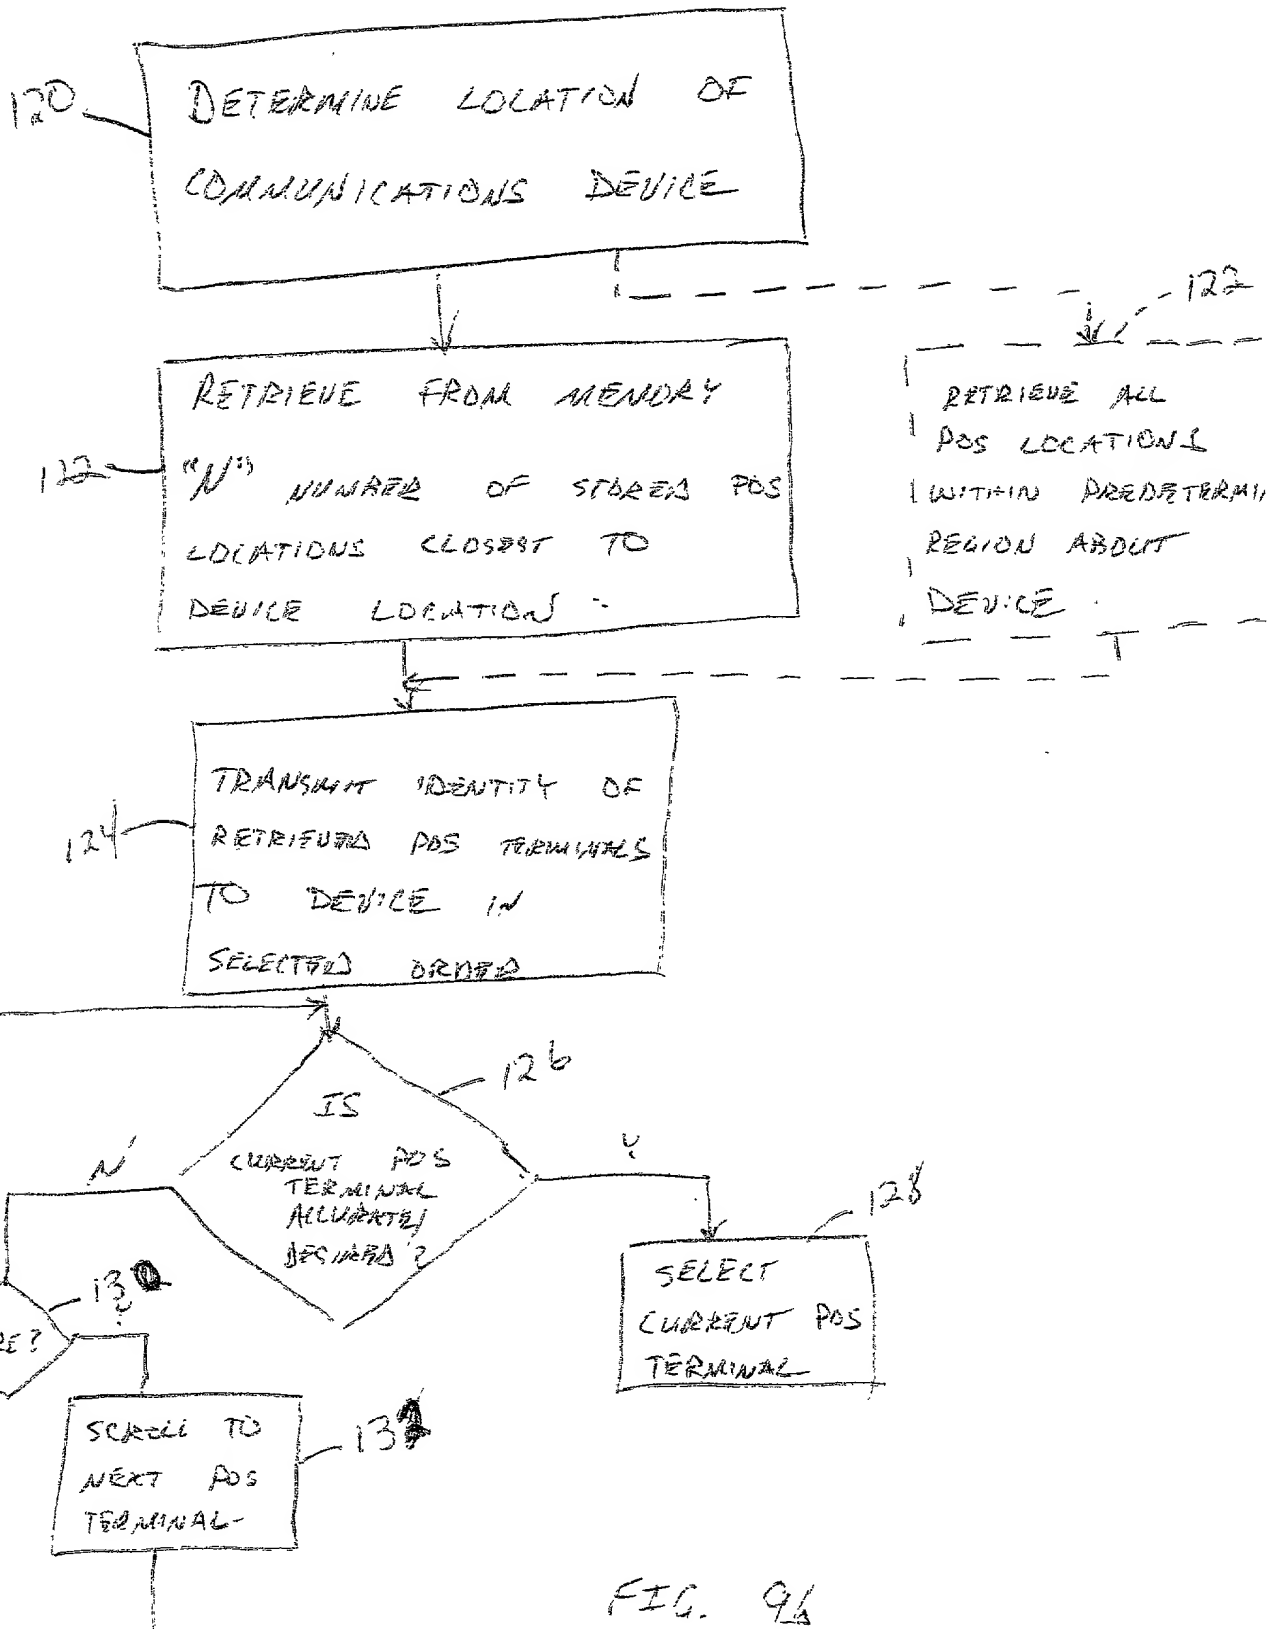 120
DETERMINE LOCATION OF
COMMUNICATIONS DEVICE
122
RETRIEVE FROM MEMORY
"N" NUMBER OF STORED POS
LOCATIONS CLOSEST TO
DEVICE LOCATION
122
RETRIEVE ALL
POS LOCATIONS
WITHIN PREDETERMI
REGION ABOUT
DEVICE
124
TRANSMIT IDENTITY OF
RETRIEVED POS TERMINALS
TO DEVICE IN
SELECTED ORDER
126
IS
CURRENT POS
TERMINAL
ACCURATE/
DESIRED?
N
Y
128
SELECT
CURRENT POS
TERMINAL
130
RE?
SCROLL TO
NEXT POS
TERMINAL
132
FIG.